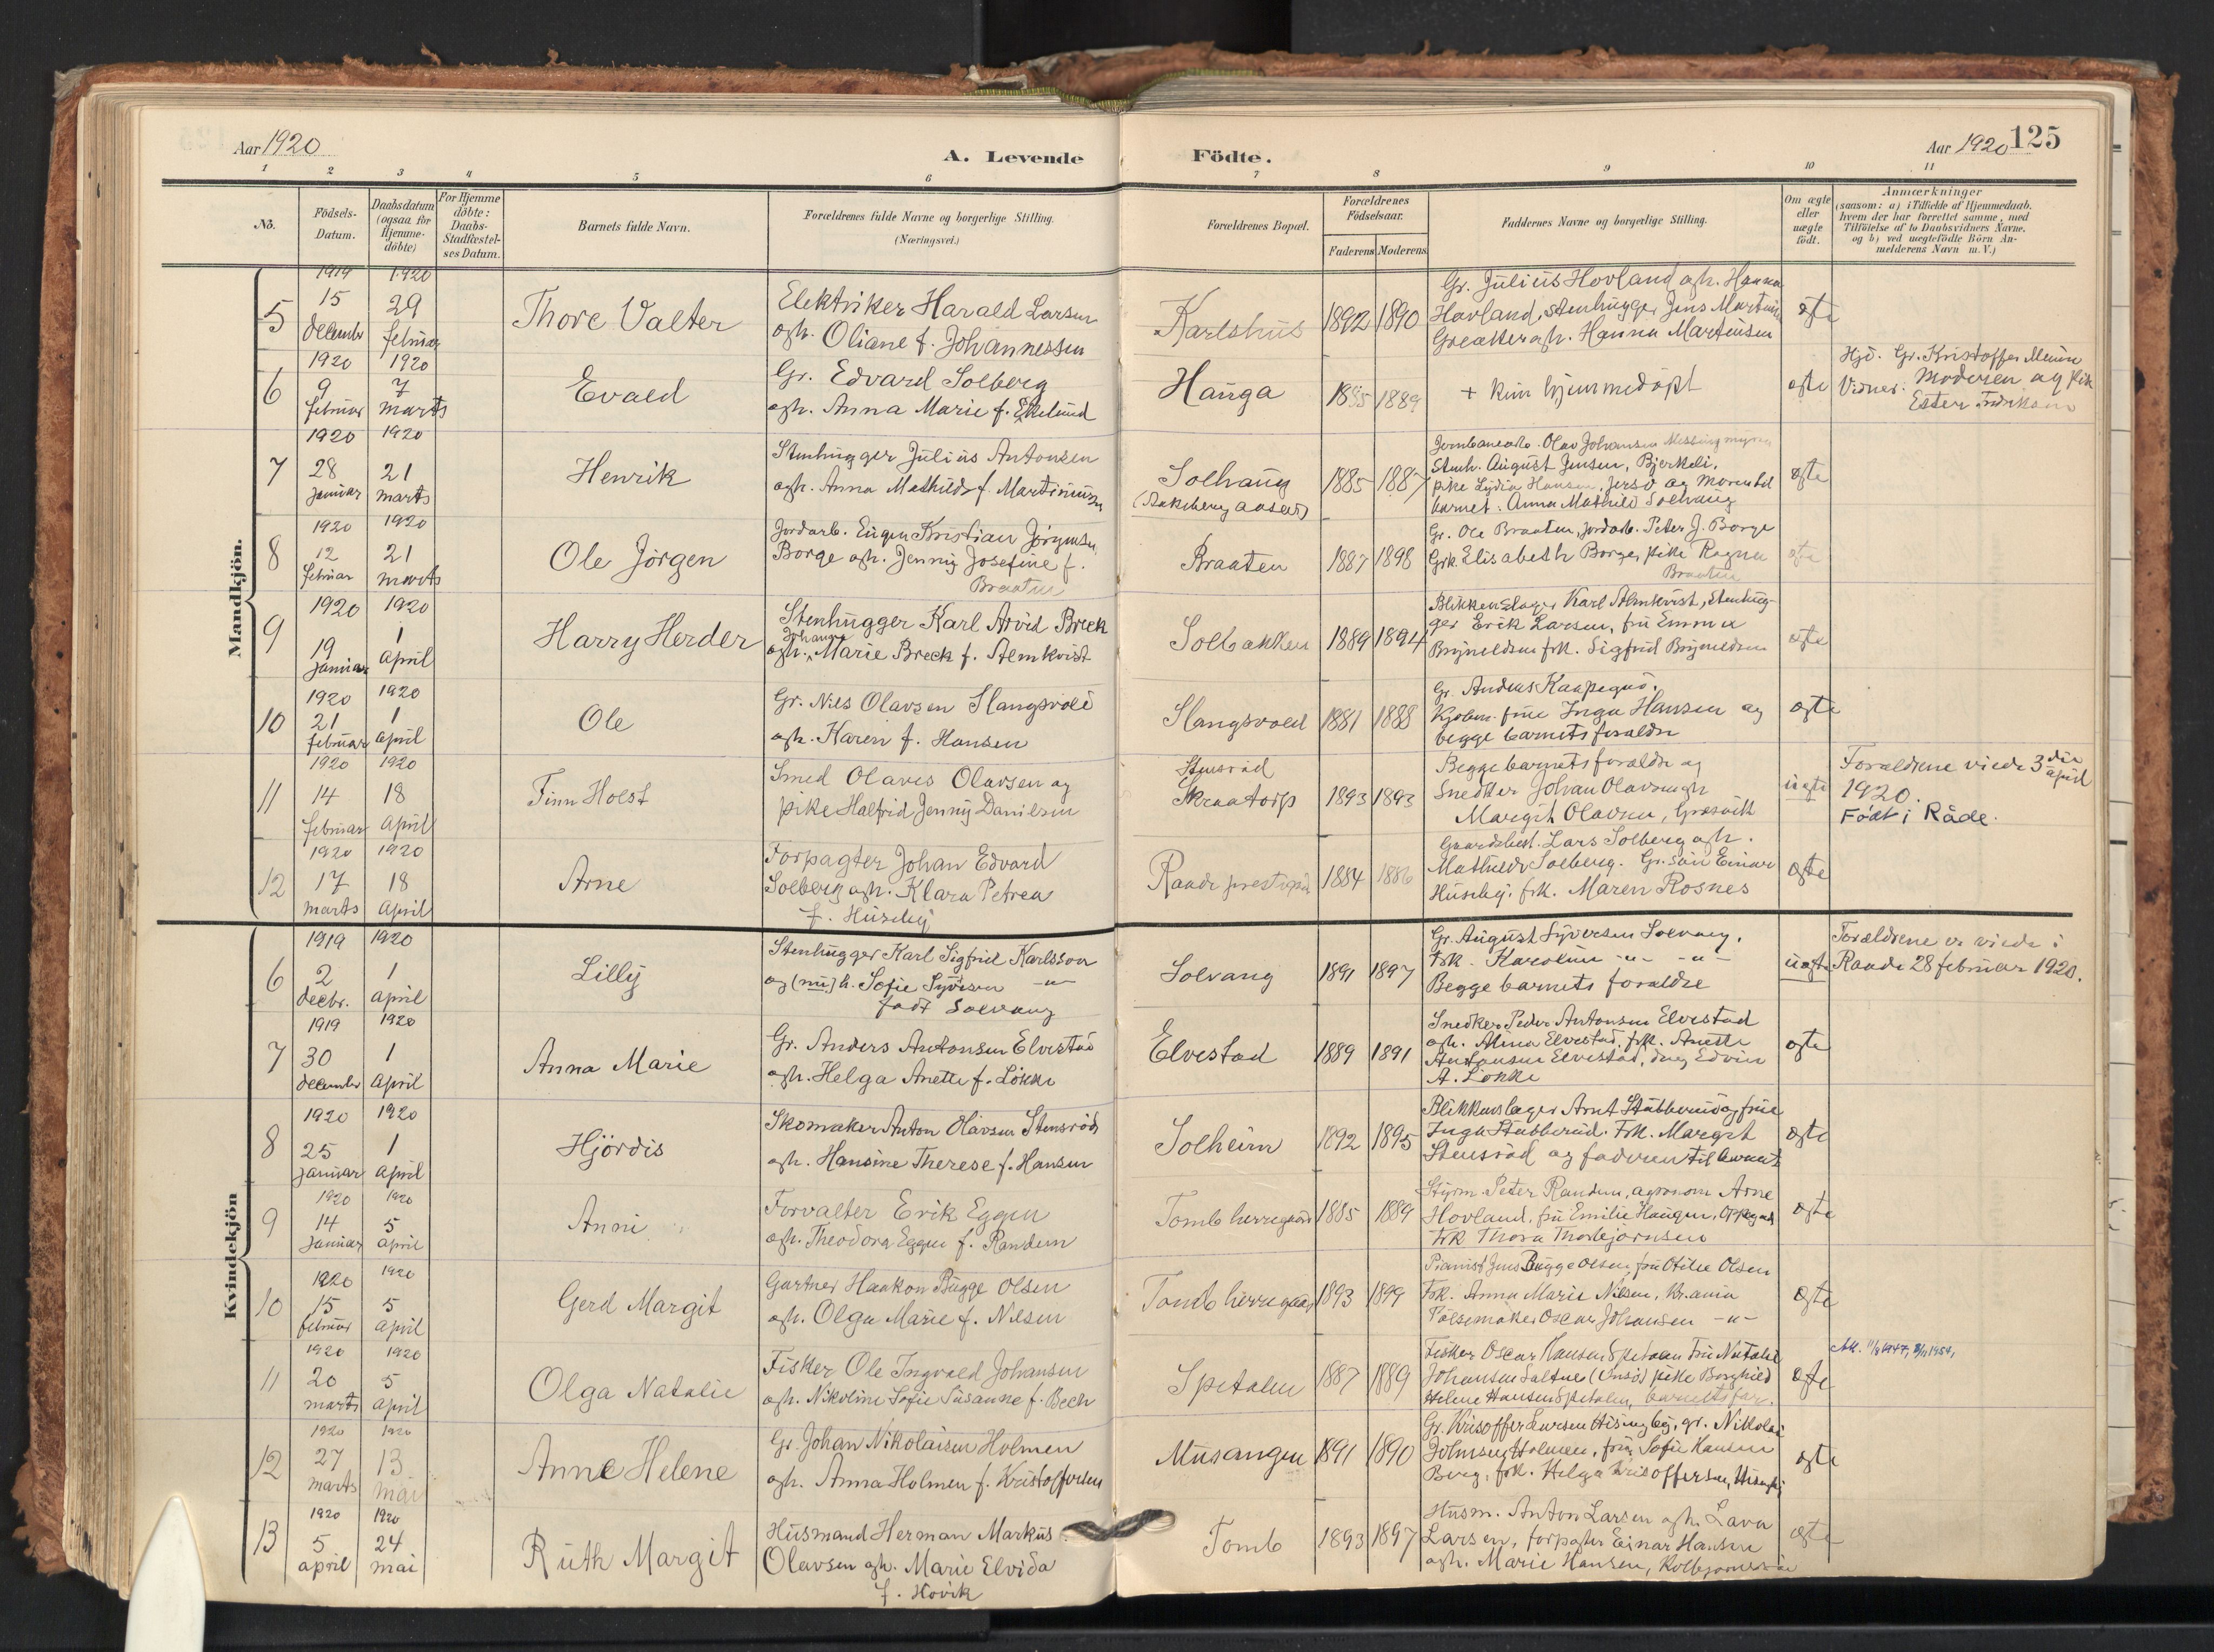 Aar 1920
A. Levende
Födte.
Aar 1920
125
1 2 3 4 5 6 7 8 9 10 11
No.
Födsels-
Datum.
Daabsdatum
(ogsaa for
Hjemme-
döbte)
For Hjemme
döbte:
Daabs-
Stadfæstel-
ses Datum.
Barnets fulde Navn.
Forældrenes fulde Navne og borgerlige Stilling.
(Næringsvei.)
Forældrenes Bopæl.
Forældrenes
Födselsaar.
Faderens
Moderens
Faddernes Navne og borgerlige Stilling.
Om ægte
eller
uægte
födt.
Anmærkninger
(saasom: a) i Tilfælde af Hjemmedaab,
hvem der har forrettet samme, med
Tilföielse af to Daabsvidners Navne,
og b) ved uægtefödte Börn An-
melderens Navn m. V.)
Mandkjön.
5
1919
15
decembr
1920
29
februar
Thore Valter
Elektriker Harald Larsen
ogh. Oliane f. Johannessen
Karlshus
1892
1890
Gr. Julius Hovland ogh. Hanna
Hovland, stenhugger Jens Martinsen
Greaker ogh. Hanna Martinsen
ægte
6
1920
9
februar
1920
7
marts
Evald
Gr. Edvard Solberg
ogh. Anna Marie f. Ekelund
Hauga
1885
1889
+ kun hjemmedöpt
ægte
Hjd. Gr. Kristoffer
Vidner: Moderen og pike
Ester Fredriksen
7
1920
28
januar
1920
21
marts
Henrik
Stenhugger Julius Antonsen
ogh. Anna Mathilde f. Martinusen
Solhaug
1885
1887
Olav Johansen
Stenh. August Jensen, Bjerkeli,
pike Lydia Hansen, og moren til
barnet. Anna Mathilde Solhaug
ægte
8
1920
12
februar
1920
21
marts
Ole Jörgen
Jordarb. Eugen Kristian Jörgensen
Borge ogh. Jenny Josefine f.
Braaten
Braaten
1887
1898
Gr. Ole Braaten, jordarb. Peter J. Borge
Grk. Elisabeth Borge, pike Ragna
Braaten
ægte
9
1920
19
januar
1920
1
april
Harry Herder
Stenhugger Karl Arvid Breck
Johanna
ogh. Marie Breck f. Almkvist
Solbakken
1889
1894
Blikkenslager Karl Almkvist, stenhug-
ger Erik Larsen, fru Emma
Brynildsen frk. Sigfrid Brynildsen
ægte
10
1920
21
februar
1920
1
april
Ole
Gr. Nils Olavsen Slangsvold
ogh. Karen f. Hansen
Slangsvold
1881
1888
Gr. Andreas
Kjøbm. frue Inga Hansen og
begge barnets forældre
ægte
11
1920
14
februar
1920
18
april
Finn Holst
Smed Olaves Olavsen og
pike Halfrid Jenny Danielsen
Stensröd
Skraatorp
1893
1893
Begge barnets forældre og
Snedker Johan Olavsen ogh
Margit Olavsen, Græsvik
uægte
Forældrene viede 3die april
1920.
Født i Råde.
12
1920
17
marts
1920
18
april
Arne
Forpagter Johan Edvard
Solberg ogh. Klara Petrea
f. Huseby
Raade prestegaard
1884
1886
Gaardsbest. Lars Solberg ogh.
Mathilde Solberg. Gr. sön Einar
Huseby. frk. Maren Rosnes
ægte
Kvindekjön
6
1919
2
decbr.
1920
1
april
Lilly
Stenhugger Karl Sigfrid Karlsson
og (nu) h. Sofie Syversen -"-
født Solvang
Solvang
1891
1897
Gr. August Syversen Solvang.
Frk. Karoline -"- -"-
Begge barnets forældre
uægte
Forældrene er viede i
Raade 28 februar 1920.
7
1919
30
decembr
1920
1
april
Anna Marie
Gr. Anders Antonsen Elvestad
ogh. Helga Anette f. Lökke
Elvestad
1889
1891
Snedker Peder Antonsen Elvestad
ogh. Mina Elvestad, frk. Anette
Antonsen Elvestad, ung. Edvin
A. Lökke
ægte
8
1920
25
januar
1920
1
april
Hjördis
Skomaker Anton Olavsen Stensröd
ogh. Hansine Therese f. Hansen
Solheim
1892
1895
Blikkenslager Arnt Stubberud og frue
Inga Stubberud. Frk. Margit
Stensröd og faderen til barnet
ægte
9
1920
14
januar
1920
5
april
Anni
Forvalter Erik Eggen
ogh. Theodora Eggen f. Randem
Tomb herregaard
1885
1889
Styrm. Peter Randem, agronom Arne
Hovland, fru Emilie Haugen, Oppegaard
Frk Thora Thorbjørnsen
ægte
10
1920
15
februar
1920
5
april
Gerd Margit
Gartner Haakon Bugge Olsen
ogh. Olga Marie f. Nilsen
Tomb herregaard
1893
1899
Pianist Jens Bugge Olsen, fru Otilie Olsen
Frk. Anna Marie Nilsen, Kr.ania
Pölsemaker Oscar Johansen -"-
ægte
11
1920
20
marts
1920
5
april
Olga Natalie
Fisker Ole Ingvald Johansen
ogh. Nikoline Sofie Susanne f. Bech
Spetalen
1887
1889
Fisker Oscar Hansen Spetalen Fru Natalie
Johansen Saltnes (Onsö) pike Borghild
Helene Hansen Spetalen, barnets far.
ægte
12
1920
27
marts
1920
13
mai
Anne Helene
Gr. Johan Nikolaisen Holmen
ogh. Anna Holmen f. Kristoffersen
Musangen
1891
1890
Gr. Krisoffer Larsen Hisingby, gr. Nikolai
Johnsen Holmen, fru Sofie Hansen
Berg, frk. Helga Krisoffersen,
ægte
13
1920
5
april
1920
24
mai
Ruth Margit
Husmand Herman Markus
Olavsen ogh. Marie Elvida
f. Hovik
Tomb
1893
1897
Husm. Anton Larsen ogh. Lava
Larsen, forpagter Einar Hansen
ogh. Marie Hansen,
ægte